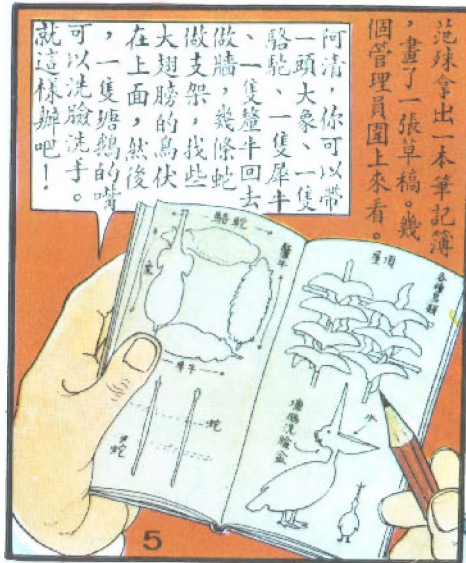 范殊拿出一本筆記簿
，畫了一張草稿。幾
個管理員圍上來看。
阿清，你可以帶
一頭大象、一隻
駱駝、一隻犀牛
、一隻釐牛回去
做牆，幾條蛇
做支架，找些
大翅膀的鳥伏
在上面，然後
，一隻塘鵝的嘴
可以洗臉洗手。
就這樣辦吧！
駱駝
釐牛
象
犀牛
蛇
蛇
屋頂
各種鳥類
水
塘鵝洗臉盆
5